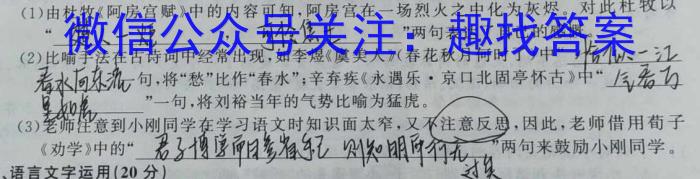 (1)由杜牧《阿房宫赋》中的内容可知,阿房宫在一场烈火之中化为灰烬。对此杜牧以
“ ”两句表
微信公众号关注:趣找答案
(2)比喻手法在古诗词中经常出现,如李煜《虞美人》(春花秋月何时了)中“恰似一江
春水向东流”一句,将“愁”比作“春水”;辛弃疾《永遇乐·京口北固亭怀古》中“气吞万
里如虎”一句,将刘裕当年的气势比喻为猛虎。
(3)老师注意到小刚同学在学习语文时知识面太窄,又不注意反思,因此,老师借用荀子
《劝学》中的“君子博学而日参省乎己 则知明而行无过矣”两句来鼓励小刚同学。
、语言文字运用(20分)